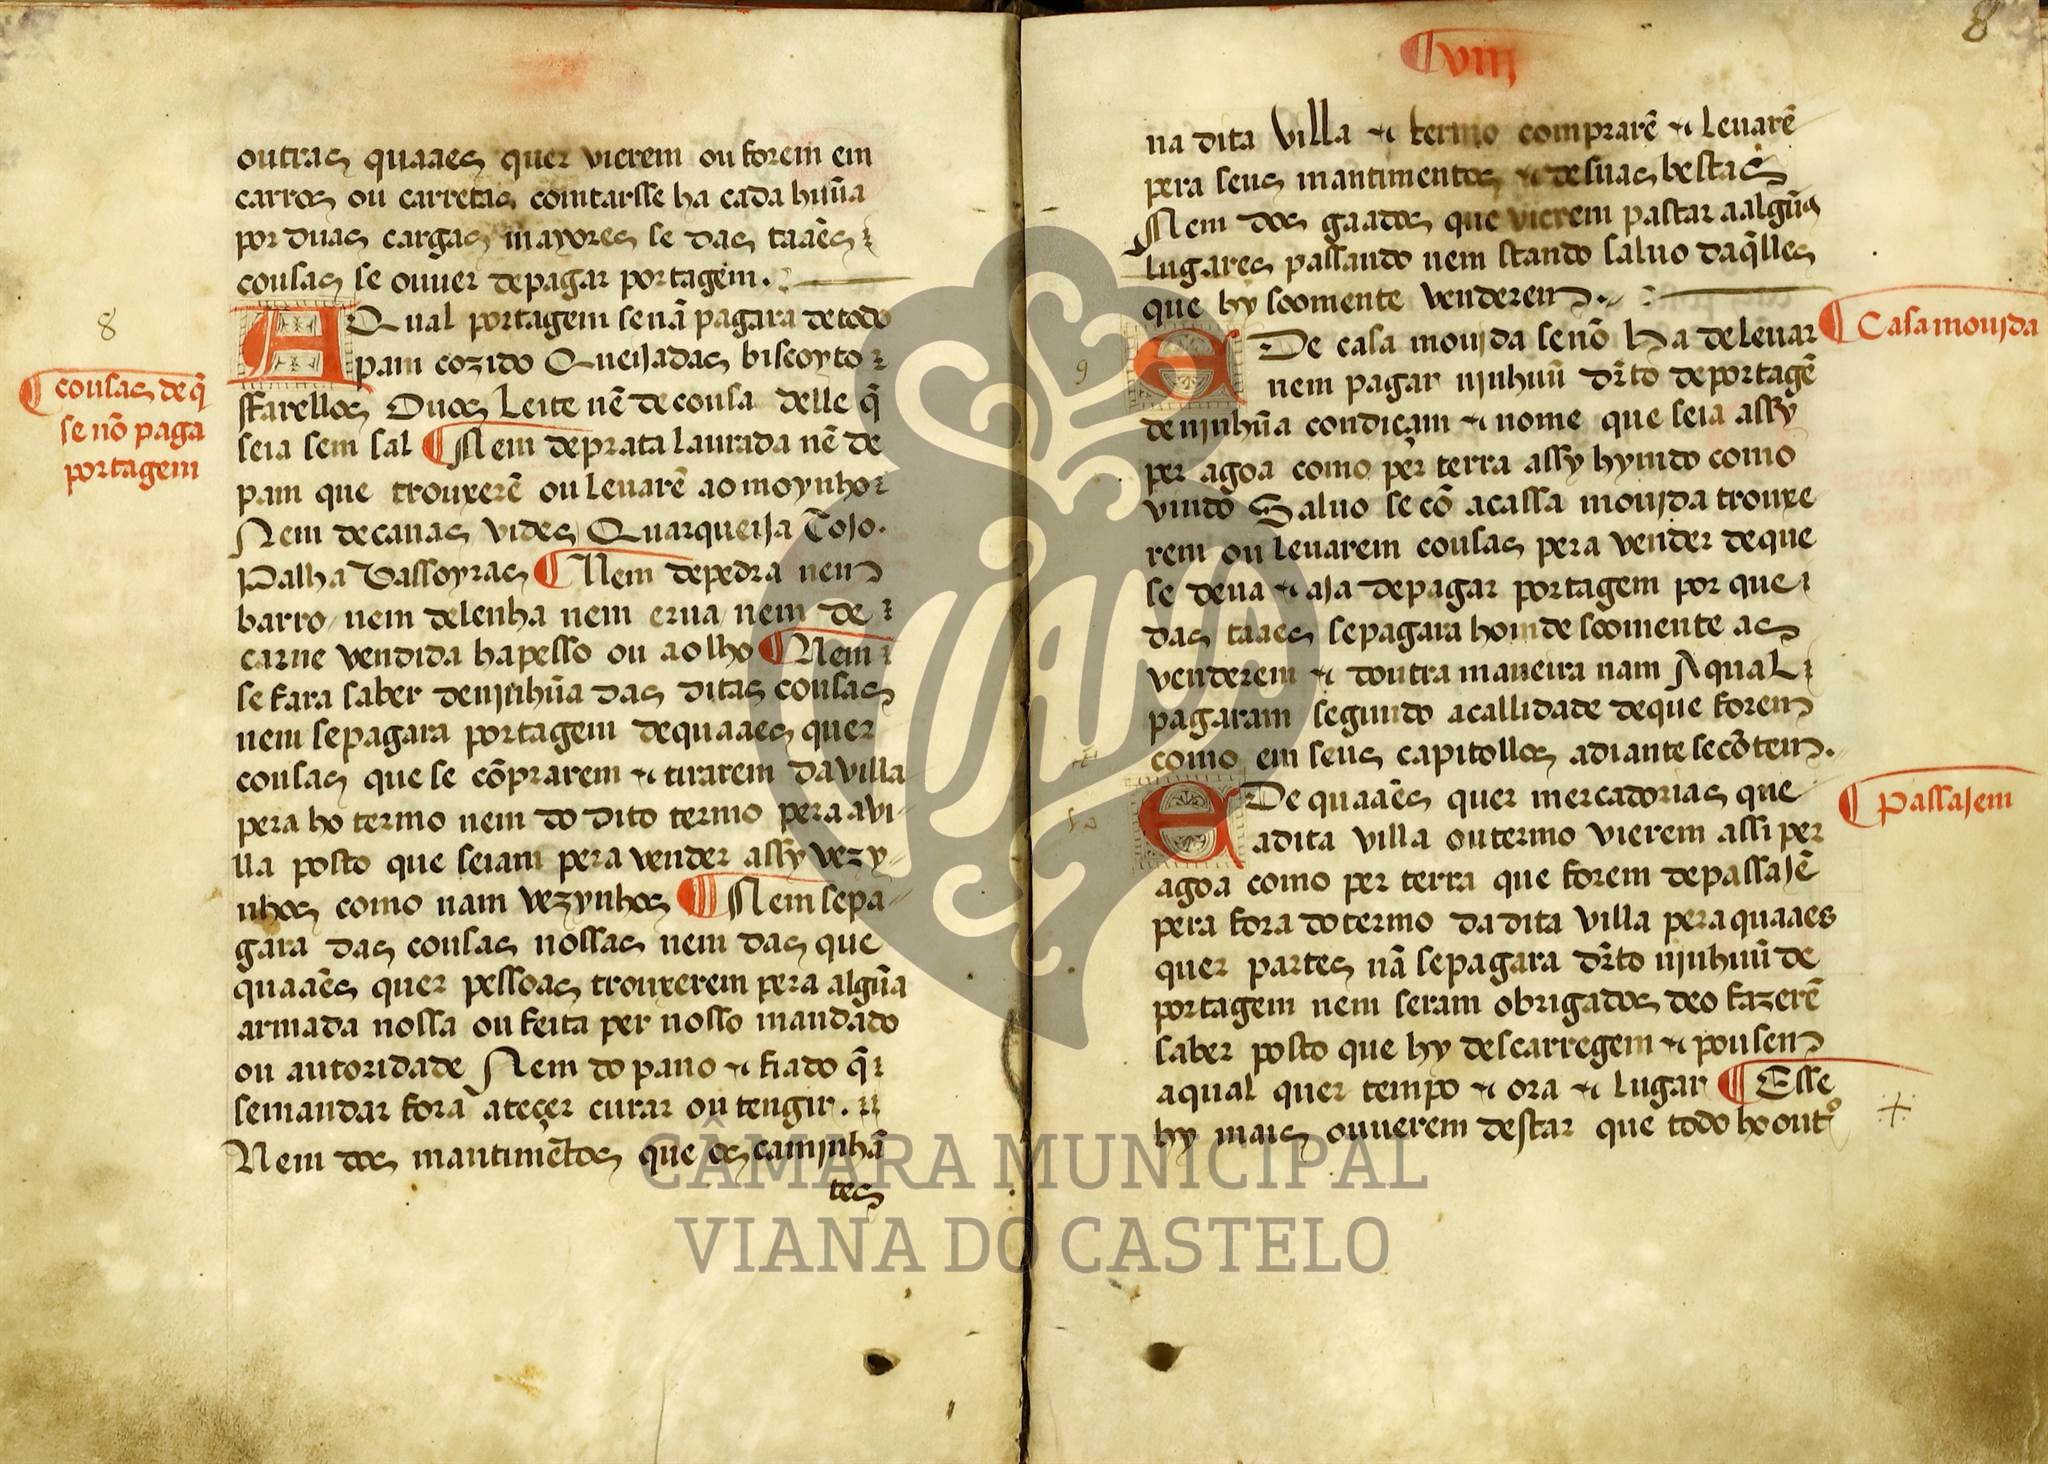 outras quaaes quer vierem ou forem em
carros ou carretas comtarsse ha cada huũa
por duas cargas mayores se das taaẽs
cousas se ouuer de pagar portagem.
8
¶ cousas de q̃
se nõ paga
portagem
A Qual portagem se nã pagara de todo
pam cozido Queijadas biscoyto
ffarellos Ouos Leite nẽ de cousa delle q̃
seia sem sal ¶ Nem de prata laurada nẽ de
pam que trouxerẽ ou leuarẽ ao moynho
Nem de canas vides Quarqueija Tojo.
Palha Vassoyras ¶ Nem de pedra nem
barro / nem de lenha nem erua / nem de
carne vendida ha pesso ou a olho ¶ Nem
se fara saber de nijnhũa das ditas cousas
nem se pagara portagem de quaaes quer
cousas que se cõprarem ⁊ tirarem da villa
pera ho termo nem do dito termo pera a vi-
lla posto que seiam pera vender assy vezy-
nhos como nam vezynhos ¶ Nem se pa-
gara das cousas nossas nem das que
quaaẽs quer pessoas trouxerem pera algũa
armada nossa ou feita per nosso mandado
ou autoridade Nem do pano ⁊ fiado q̃
se mandar fora a teçer curar ou tengir.
Nem dos mantimẽtos que os caminhã
tes
¶ viij
8
na dita Villa ⁊ termo comprarẽ ⁊ leuarẽ
pera seus mantimentos ⁊ de suas bestas
Nem dos gaados que vierem pastar a algũs
lugares passando nem stando saluo daq̃lles
que hy soomente venderem.
¶ Casa mouida
9
E De casa mouida se nõ Ha de leuar
nem pagar ninhuũ dr̃to de portagẽ
de nijnhũa condiçam ⁊ nome que seia assy
per agoa como per terra assy hyndo como
vindo Saluo se cõ a cassa mouida trouxe
rem ou leuarem cousas pera vender de que
se deua ⁊ aja de pagar portagem por que
das taaes se pagara homde soomente as
venderem ⁊ doutra maneira nam A qual
pagaram segundo a callidade de que forem
como em seus capitollos adiante se cõtem.
¶ Passajem
10
E De quaaẽs quer mercadorias que
a dita villa ou termo vierem assi per
agoa como per terra que forem de passajẽ
pera fora do termo da dita villa pera quaaes
quer partes nã se pagara dr̃to nijnhuũ de
portagem nem seram obrigados de o fazerẽ
saber posto que hy descarregem ⁊ pousem
a qual quer tempo ⁊ ora ⁊ lugar ¶ E sse
hy mais ouuerem destar que todo ho out̊
CÂMARA MUNICIPAL
VIANA DO CASTELO